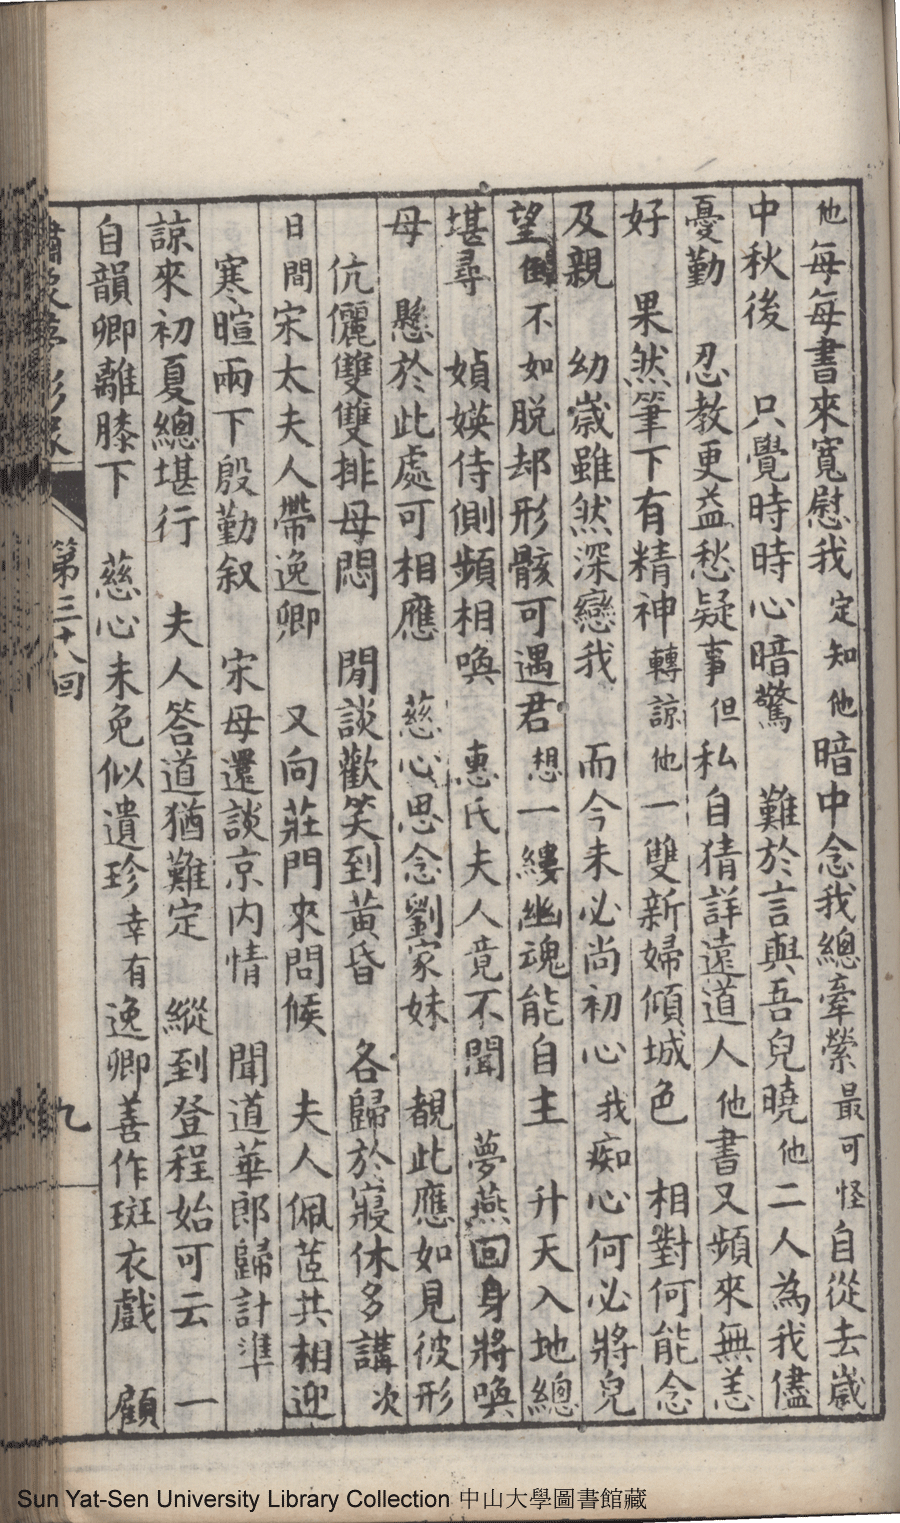 他每每書來寬慰我 定知他暗中念我總牽縈 最可怪自從去歲
中秋後 只覺時時心暗驚 難於言與吾兒曉 他二人為我儘
憂勤 忍教更益愁疑事 但私自猜詳遠道人 他書又頻來無恙
好 果然筆下有精神 轉諒他一雙新婦傾城色 相對何能念
及親 幼歲雖然深戀我 而今未必尚初心 我痴心何必將兒
望 倒不如脱却形骸可遇君 想一縷幽魂能自主 升天入地總
堪尋 媜媖侍側頻相喚 惠氏夫人竟不聞 夢燕回身將喚
母 懸於此處可相應 慈心思念劉家妹 覩此應如見彼形
伉儷雙雙排母悶 閒談歡笑到黃昏 各歸於寢休多講 次
日間宋太夫人帶逸卿 又向莊門來問候 夫人佩茝共相迎
寒暄兩下殷勤叙 宋母還談京内情 聞道華郎歸計準
諒來初夏總堪行 夫人答道猶難定 縱到登程始可云 一
自韻卿離膝下 慈心未免似遺珍 幸有逸卿善作斑衣戲 顧
第三十八回
九
Sun Yat-Sen University Library Collection 中山大學圖書館藏